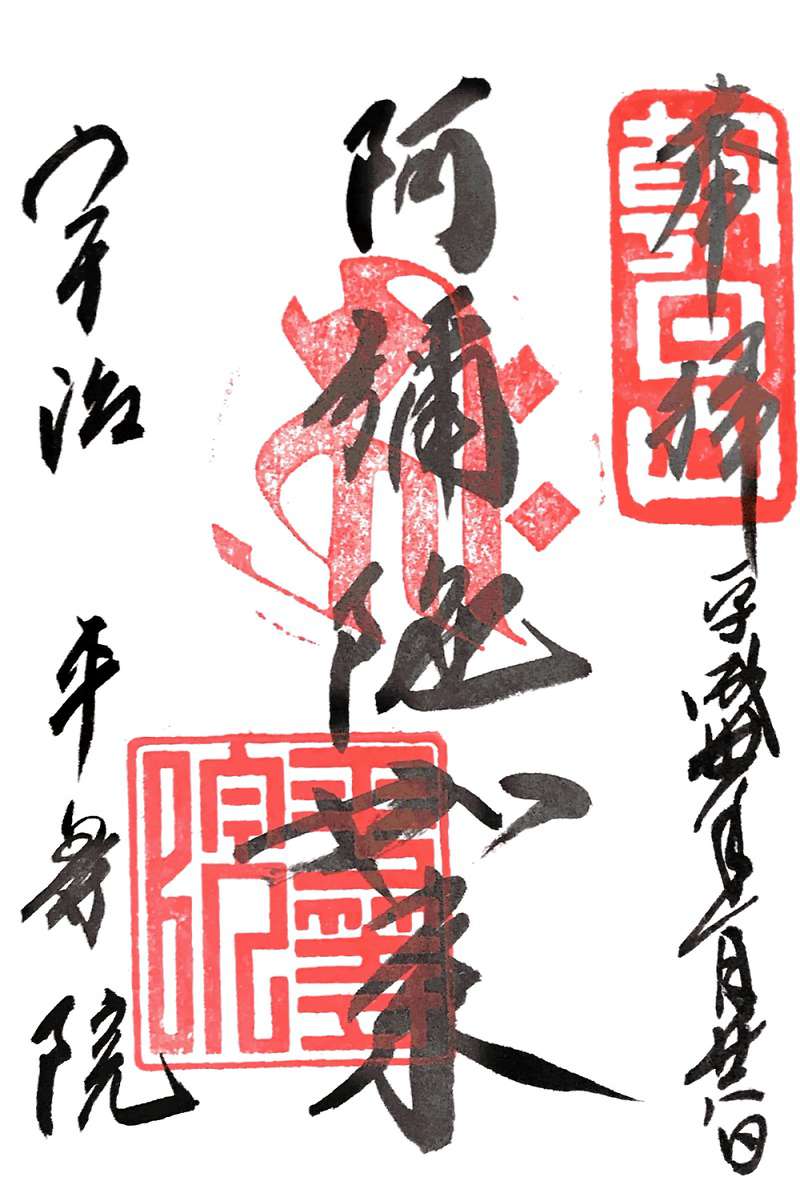 奉拝 平成年一月廿八日
朝日山
阿彌陀如来
宇治 平等院